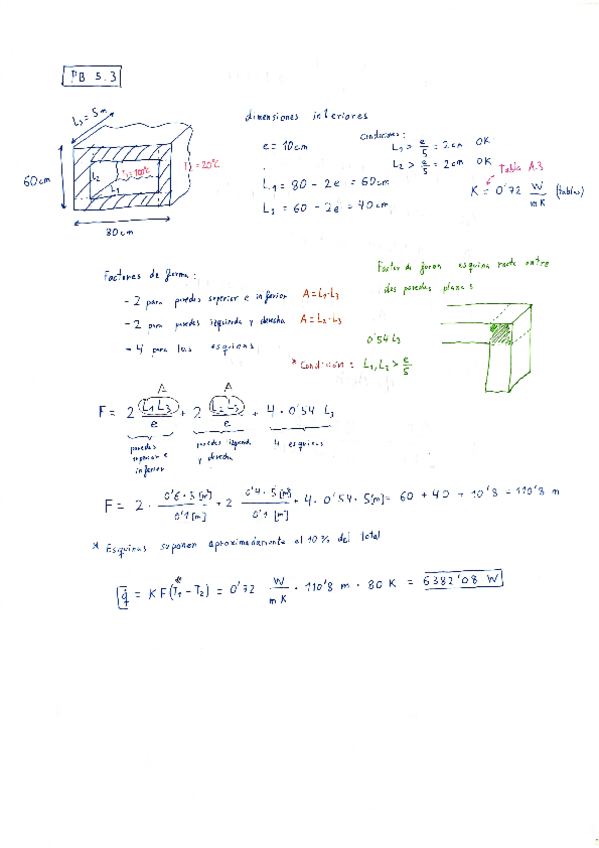 PB 5.3
L3 = 5m
60cm
80cm
L2
L1
T1=100ºC
T2 = 20ºC
dimensiones interiores
e = 10cm
L1 = 80 - 2e = 60cm
L2 = 60 - 2e = 40cm
Condiciones:
L1 > e/5 = 2cm OK
L2 > e/5 = 2cm OK
Tabla A.3
K = 0'72 W/mK (tablas)
Factores de forma:
- 2 para paredes superior e inferior A = L1·L3
- 2 para paredes izquierda y derecha A = L2·L3
- 4 para las esquinas
Factor de forma esquina recta entre
dos paredes planas
0'54 L3
* Condición: L1, L2 > e/5
F = 2 L1 L3/e + 2 L2 L3/e + 4 · 0'54 L3
A A
paredes superior e inferior
paredes izquierda y derecha
4 esquinas
F = 2 · 0'6 · 5 [m²]/0'1 [m] + 2 0'4 · 5 [m²]/0'1 [m] + 4 · 0'54 · 5[m] = 60 + 40 + 10'8 = 110'8 m
* Esquinas suponen aproximadamente el 10% del total
q̇ = KF(T1 - T2) = 0'72 W/mK · 110'8 m · 80 K = 6382'08 W